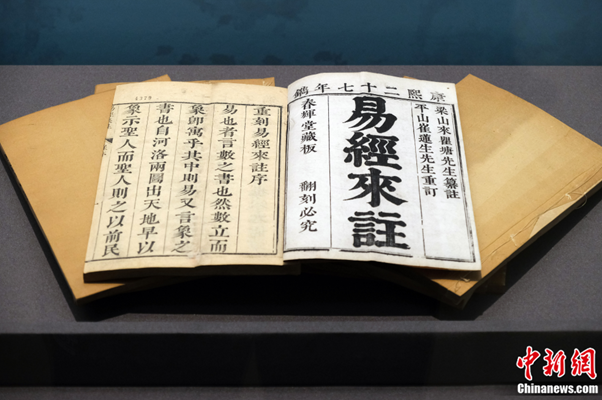 康熙二十七年鐫
梁山來瞿塘先生纂註
平山崔蓮生先生重訂
易經來註
春輝堂藏板 翻刻必究
重刻易經來註序
易也者言數之書也然數立而
象卽寓乎其中則易又言象之
書也自河洛兩圖出天地早以
象示聖人而聖人則之以前民
中新网
Chinanews.com